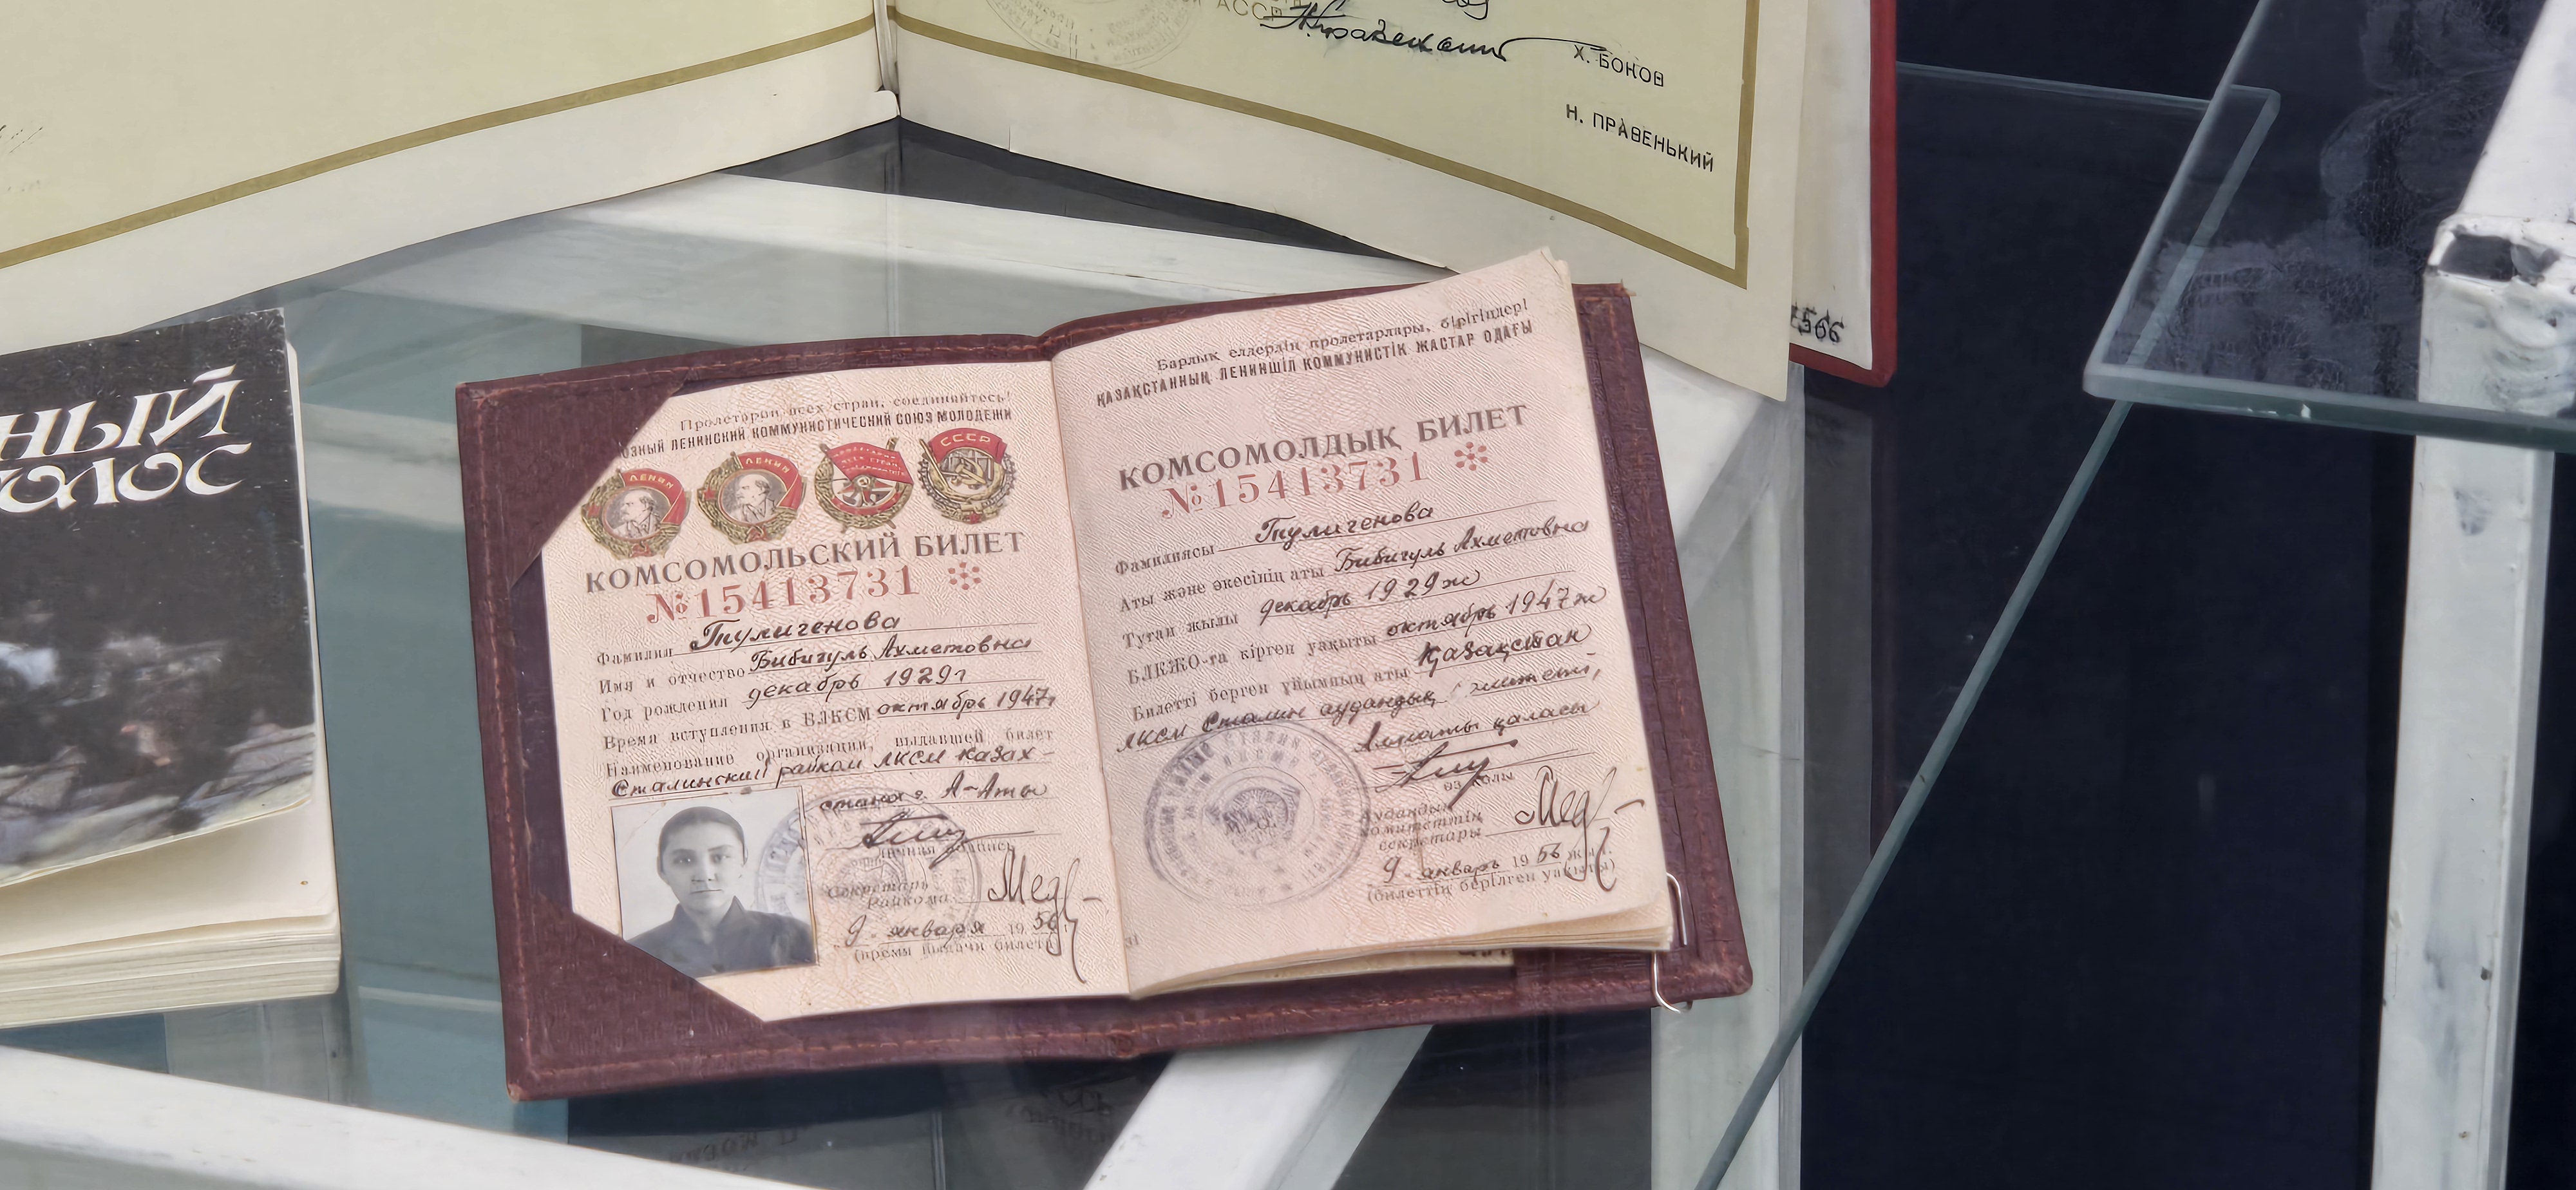 Х. БОКОВ
Н. ПРАВЕНЬКИЙ
566
НЫЙ
ОЛОС
Пролетарии всех стран, соединяйтесь!
ОЗНЫЙ ЛЕНИНСКИЙ КОММУНИСТИЧЕСКИЙ СОЮЗ МОЛОДЕЖИ
ЛЕНИН
ЛЕНИН
СССР
КОМСОМОЛЬСКИЙ БИЛЕТ
№15413731
Фамилия Тулигенова
Имя и отчество Бибигуль Ахметовна
Год рождения декабрь 1929г
Время вступления в ВЛКСМ октябрь 1947г
Наименование организации, выдавшей билет
Сталинский райком ЛКСМ Казах-
стана г. А-Аты
Личная подпись
Секретарь
Райкома
9 января 1956
(время выдачи билета)
Барлық елдердің пролетарлары, бірігіңдер!
ҚАЗАҚСТАННЫҢ ЛЕНИНШІЛ КОММУНИСТІК ЖАСТАР ОДАҒЫ
КОМСОМОЛДЫҚ БИЛЕТ
№15413731
Фамилиясы Тулигенова
Аты және әкесінің аты Бибигуль Ахметовна
Туған жылы декабрь 1929ж
БЛКЖО-ға кірген уақыты октябрь 1947ж
Билетті берген ұйымның аты Қазақстан
ЛКСМ Сталин аудандық комитеті,
Алматы қаласы
өз қолы
Аудандық
комитеттің
секретары
9 январь 1956 жыл.
(билеттің берілген уақыты)
31